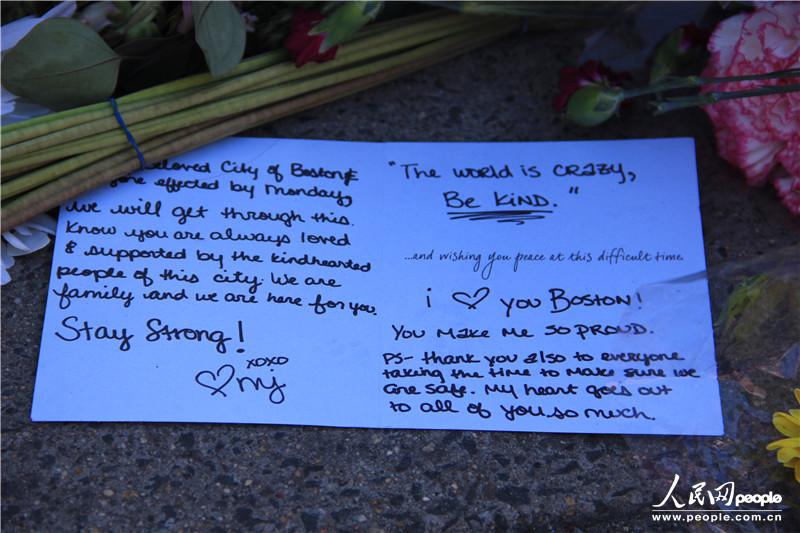 eloved City of Boston &
one effected by Monday,
We will get through this.
Know you are always loved
& supported by the kindhearted
people of this city. We are
family and we are here for you.
Stay Strong!
xoxo
♡ mj
"The world is crazy,
Be Kind."
...and wishing you peace at this difficult time.
i ♡ you Boston!
You make me so proud.
PS- thank you also to everyone
taking the time to make sure we
are safe. My heart goes out
to all of you so much.
人民网 people
www.people.com.cn